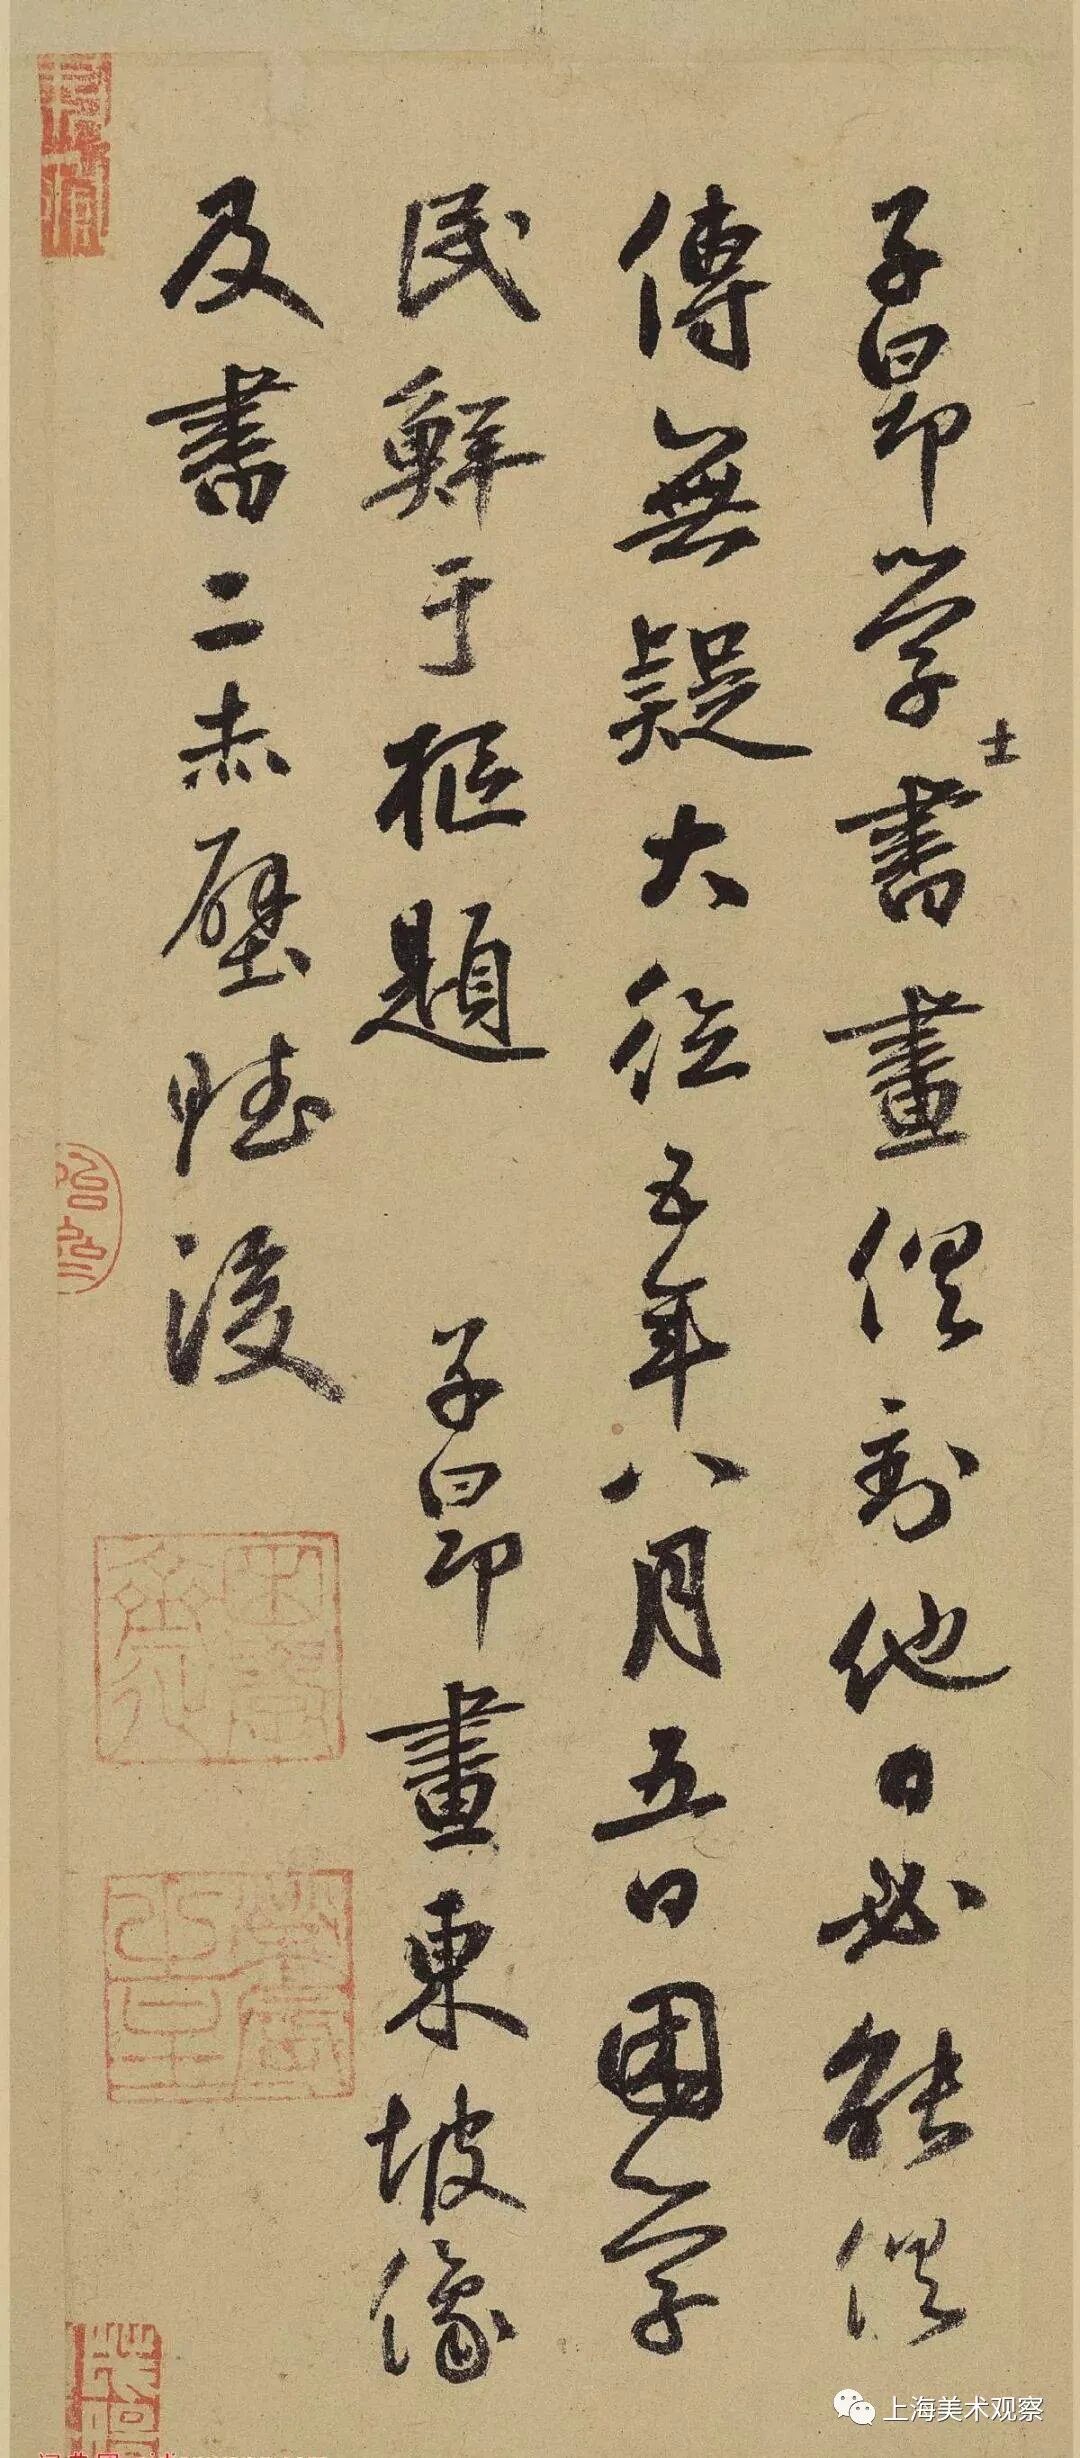 子昂学士書畫俱到他日必能俱
傳無疑大德五年八月五日困学
民鮮于樞題
子昂畫東坡像
及書二赤壁賦後
上海美术观察